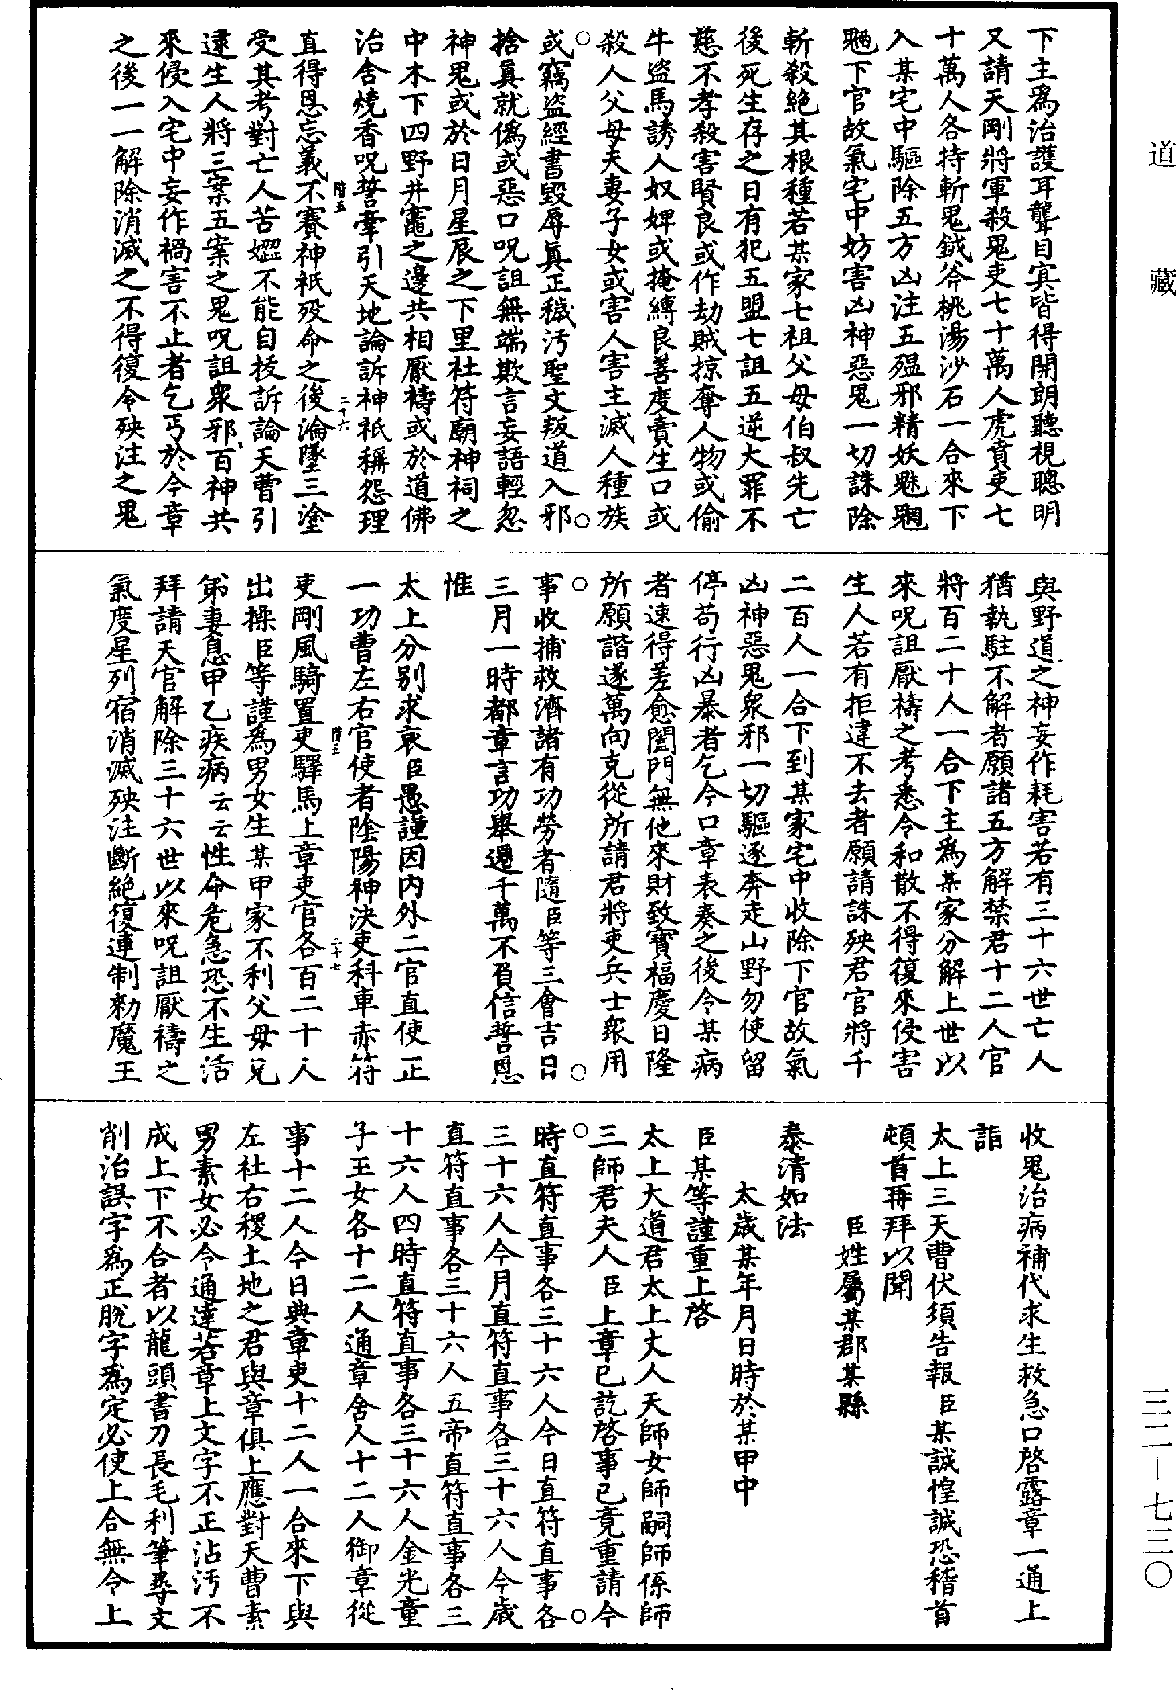 道藏
三二－七三〇
下主爲治護耳聾目寘皆得開朗聽視聰明
又請天剛將軍殺鬼吏七十萬人虎賁吏七
十萬人各持斬鬼鉞斧桃湯沙石一合來下
入某宅中驅除五方凶注五瘟邪精妖魅魍
魎下官故氣宅中妨害凶神惡鬼一切誅除
斬殺絕其根種若某家七祖父母伯叔先亡
後死生存之日有犯五盟七詛五逆大罪不
慈不孝殺害賢良或作劫賊掠奪人物或偷
牛盜馬誘人奴婢或掩縛良善度賣生口或
殺人父母夫妻子女或害人害主滅人種族
或竊盜經書毀辱真正穢污聖文叛道入邪
捨眞就僞或惡口呪詛無端欺言妄語輕忽
神鬼或於日月星辰之下里社符廟神祠之
中木下四野井竈之邊共相厭禱或於道佛
治舍燒香呪誓牽引天地論訴神祇稱怨理
階五
二十六
直得恩忘義不賽神祇歿命之後淪墜三塗
受其考對亡人苦嬺不能自拔訴論天曹引
逮生人將三案五案之鬼呪詛衆邪百神共
來侵入宅中妄作禍害不止者乞丐於今章
之後一一解除消滅之不得復令殃注之鬼
與野道之神妄作耗害若有三十六世亡人
猶執駐不解者願諸五方解禁君十二人官
將百二十人一合下主爲某家分解上世以
來呪詛厭禱之考悉令和散不得復來侵害
生人若有拒違不去者願請誅殃君官將千
二百人一合下到某家宅中收除下官故氣
凶神惡鬼衆邪一切驅逐奔走山野勿使留
停苟行凶暴者乞今口章表奏之後令某病
者速得差愈闔門無他來財致寶福慶日隆
所願諧遂萬向克從所請君將吏兵士衆用
事收捕救濟諸有功勞者隨臣等三會吉日
三月一時都章言功舉遷千萬不負信誓恩
惟
太上分別求哀臣愚謹因內外二官直使正
一功曹左右官使者陰陽神決吏科車赤符
階三
二十七
吏剛風騎置吏驛馬上章吏官各百二十人
出操臣等謹為男女生某甲家不利父母兄
弟妻息甲乙疾病云云性命危急恐不生活
拜請天官解除三十六世以來呪詛厭禱之
氣度星列宿消滅殃注斷絕復連制勑魔王
收鬼治病補代求生救急口啓露章一通上
詣
太上三天曹伏須告報臣某誠惶誠恐稽首
頓首再拜以聞
臣姓屬某郡某縣
泰清如法
太歲某年月日時於某甲中
臣某等謹重上啓
太上大道君太上丈人天師女師嗣師係師
三師君夫人臣上章已訖啓事已竟重請今
時直符直事各三十六人今日直符直事各
三十六人今月直符直事各三十六人今歲
直符直事各三十六人五帝直符直事各三
十六人四時直符直事各三十六人金光童
子玉女各十二人通章舍人十二人御章從
事十二人今日典章吏十二人一合來下與
左社右稷土地之君與章俱上應對天曹素
男素女必令通達若章上文字不正沾污不
成上下不合者以龍頭書刀長毛利筆尋文
削治誤字爲正脫字爲定必使上合無令上